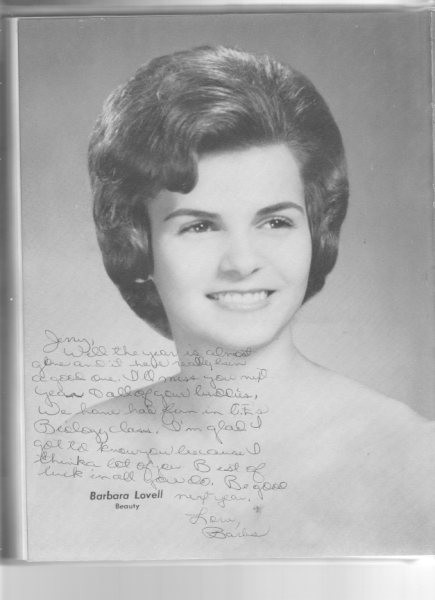 Jerry,
Well the year is almost
gone and it have really been
a good one. I'll miss you next
year & all of your buddies,
We have had fun in
Biology class. I'm glad I
got to know you because I
think a lot of you Best of
luck in all you do. Be good
next year.
Love,
Barba
Barbara Lovell
Beauty